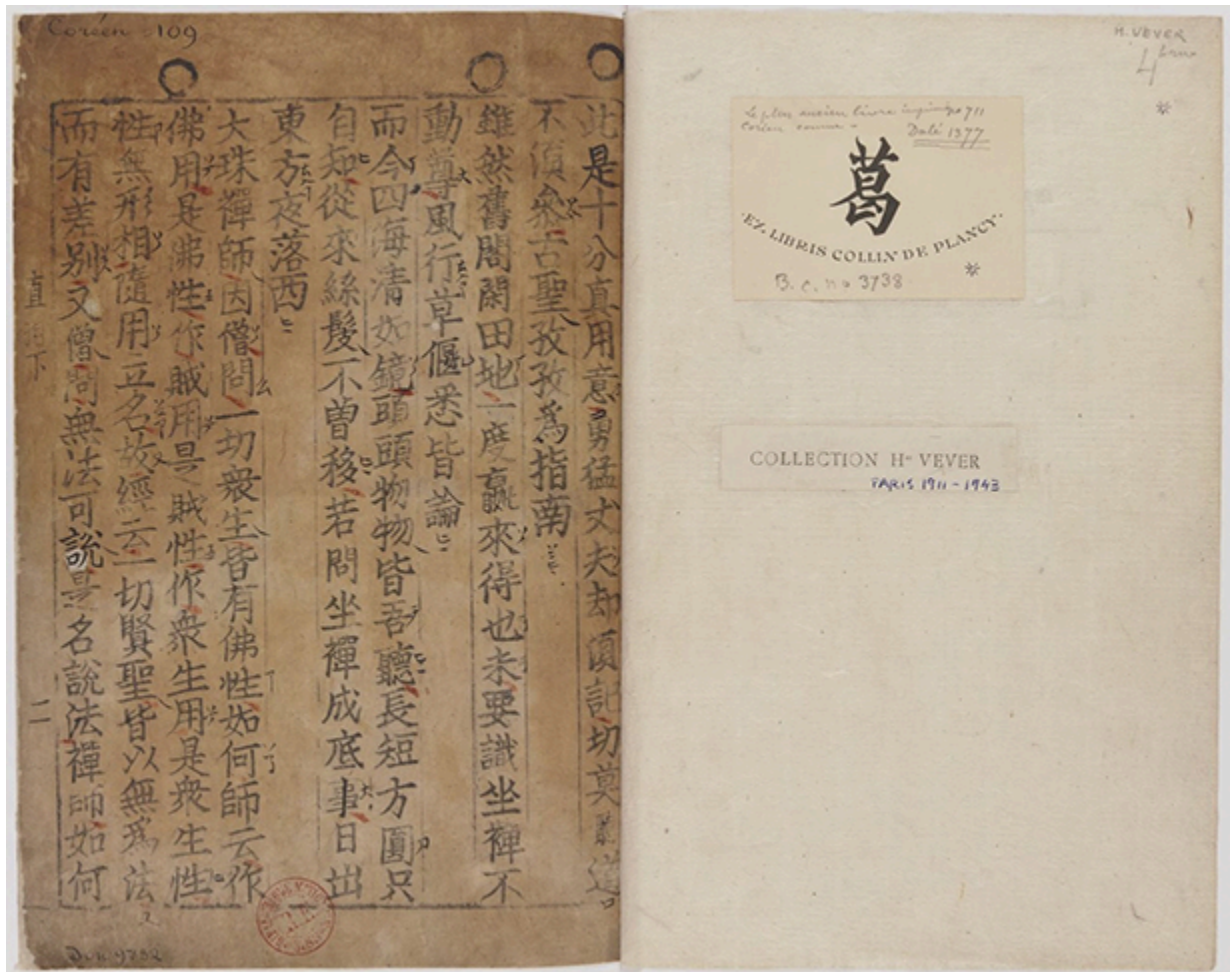 Coréen 109
此是十分真用意勇猛丈夫却須記切莫道
不須叅古聖孜孜爲指南
雖然舊閣閑田地一度贏來得也未要識坐禪不
動尊風行草偃悉皆論
而今四海清如鏡頭頭物物皆吾聽長短方圓只
自知從來絲髮不曾移若問坐禪成底事日出
東方夜落西
大珠禪師因僧問一切衆生皆有佛性如何師云作
佛用是佛性作賊用是賊性作衆生用是衆生性
性無形相隨用立名故經云一切賢聖皆以無爲法
而有差別又僧問無法可說是名說法禪師如何
直指下
二
H. VEVER
Le plus ancien livre imprimé 711
Coréen connu =
Daté 1377
葛
EX LIBRIS COLLIN DE PLANCY
B. C. no 3738
COLLECTION Hri VEVER
PARIS 1911-1943